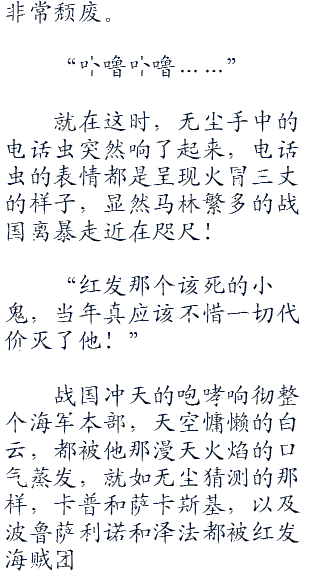 非常颓废。
“咔噜咔噜……”
就在这时，无尘手中的
电话虫突然响了起来，电话
虫的表情都是呈现火冒三丈
的样子，显然马林繁多的战
国离暴走近在咫尺！
“红发那个该死的小
鬼，当年真应该不惜一切代
价灭了他！”
战国冲天的咆哮响彻整
个海军本部，天空慵懒的白
云，都被他那漫天火焰的口
气蒸发，就如无尘猜测的那
样，卡普和萨卡斯基，以及
波鲁萨利诺和泽法都被红发
海贼团